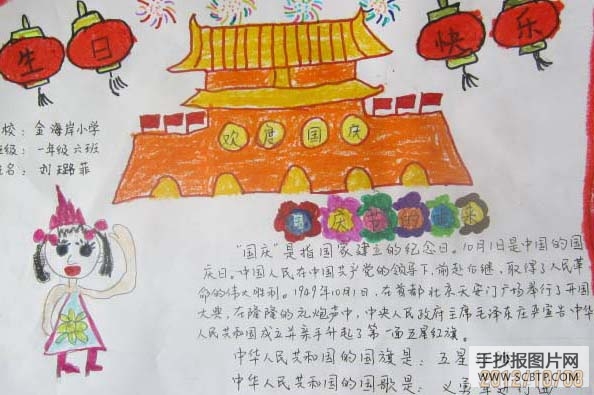 生日快乐
欢度国庆
校：金海岸小学
级：一年级六班
名：刘璐菲
国庆节的由来
"国庆"是指国家建立的纪念日。10月1日是中国的国
庆日。中国人民在中国共产党的领导下，前赴后继，取得了人民革
命的伟大胜利。1949年10月1日，在首都北京天安门广场举行了开国
大典，在隆隆的礼炮声中，中央人民政府主席毛泽东庄严宣告中华
人民共和国成立并亲手升起了第一面五星红旗。
中华人民共和国的国旗是：五星
中华人民共和国的国歌是：义勇军进行曲
手抄报图片网
WWW.SCBTP.COM
2012/10/08